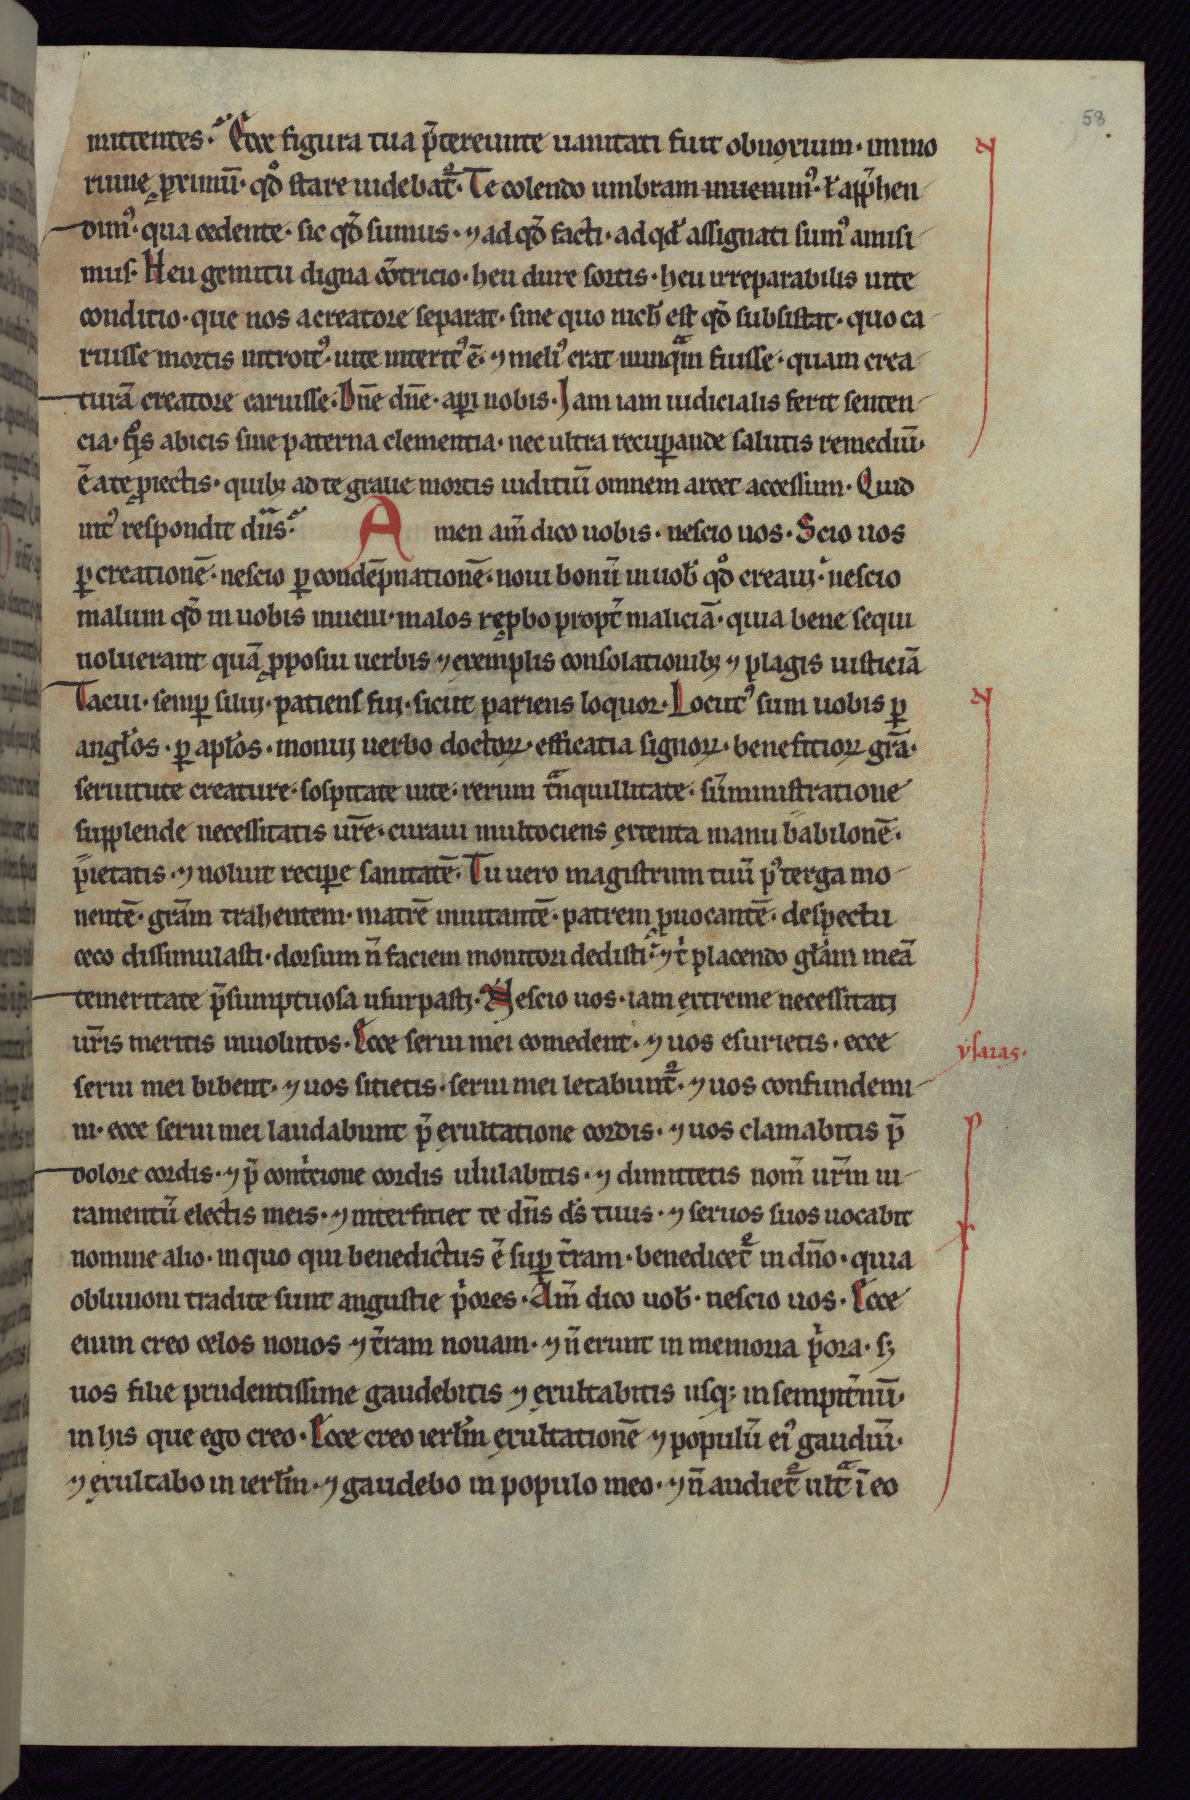 58
mittentes. Ecce figura tua p̄tereunte uanitati fuit obnoxium. immo
ruine ꝓximū. qd̄ stare uidebat᷑. Te colendo umbram inuenimꝰ. ⁊ app̄hen
dimꝰ. qua cedente. sic qd̄ sumus. ⁊ ad qd̄ facti. ad qd̄ assignati sumꝰ amisi
mus. Heu gemitu digna ꝯ̄tricio. heu dure sortis. heu irreparabilis uite
conditio. que nos a creatore separat. sine quo nich̄ est qd̄ subsistat. quo ca
ruisse mortis introitꝰ. uite interitꝰ ē. ⁊ meliꝰ erat nunqᵃm fuisse. quam crea
turā creatore caruisse. Dn̄e dn̄e. aperi nobis. Iam iam iudicialis ferit senten
cia. qͦs abicis sine paterna clementia. nec ultra recuꝑande salutis remediū.
ē a te ꝓiectis. quibꝫ ad te graue mortis iuditiū omnem arcet accessum. Quid
int᷑ respondit dn̄s. Amen am̄ dico uobis. nescio uos. Scio uos
ꝑ creationē. nescio ꝑ condēpnationē. noui bonū in uob̄ qd̄ creaui. nescio
malum qd̄ in uobis inueni. malos reꝓbo propt̄ maliciā. quia bene sequi
noluerant quā ꝓposui uerbis ⁊ exemplis consolationibꝫ ⁊ plagis iusticiā
Tacui. semꝑ silui. patiens fui. sicut pariens loquor. Locutꝰ sum uobis ꝑ
angl̄os. ꝑ apl̄os. monui uerbo doctoꝝ. efficatia signoꝝ. benefitioꝝ gr̄a.
seruitute creature. sospitate uite. rerum tᵃnquillitate. sūministratione
supplende necessitatis ur̄e. curaui multociens extenta manu babilonē.
pietatis. ⁊ noluit reciꝑe sanitatē. Tu uero magistrum tuū pꝰ terga mo
nentē. gr̄am trahentem. matrē inuitantē. patrem ꝓuocantē. despectu
ceco dissimulasti. dorsum n̄ faciem monitori dedisti. ⁊ t̄ placendo gl̄am meā
temeritate p̄sumptuosa usurpasti. Nescio uos. iam extreme necessitati
ur̄is meritis inuolutos. Ecce serui mei comedent. ⁊ uos esurietis. ecce
ysaias.
serui mei bibent. ⁊ uos sitietis. serui mei letabunt᷑. ⁊ uos confundemi
ni. ecce serui mei laudabunt p̄ exultatione cordis. ⁊ uos clamabitis p̄
dolore cordis. ⁊ p̄ contͥcione cordis ululabitis. ⁊ dimittetis nom̄ ur̄m iu
ramentū electis meis. ⁊ interfitiet te dn̄s ds̄ tuus. ⁊ seruos suos uocabit
nomine alio. in quo qui benedictus ē suꝑ t̄ram. benedicet᷑ in dn̄o. quia
obliuioni tradite sunt angustie pͥores. Am̄ dico uob̄. nescio uos. Ecce
enim creo celos nouos ⁊ t̄ram nouam. ⁊ n̄ erunt in memoria pͥora. sꝫ
uos filie prudentissime gaudebitis ⁊ exultabitis usqꝫ in sempit̄nū.
in his que ego creo. Ecce creo ierl̄m exultationē ⁊ populū eiꝰ gaudiū.
⁊ exultabo in ierl̄m. ⁊ gaudebo in populo meo. ⁊ n̄ audiet᷑ ultᵃ ī eo